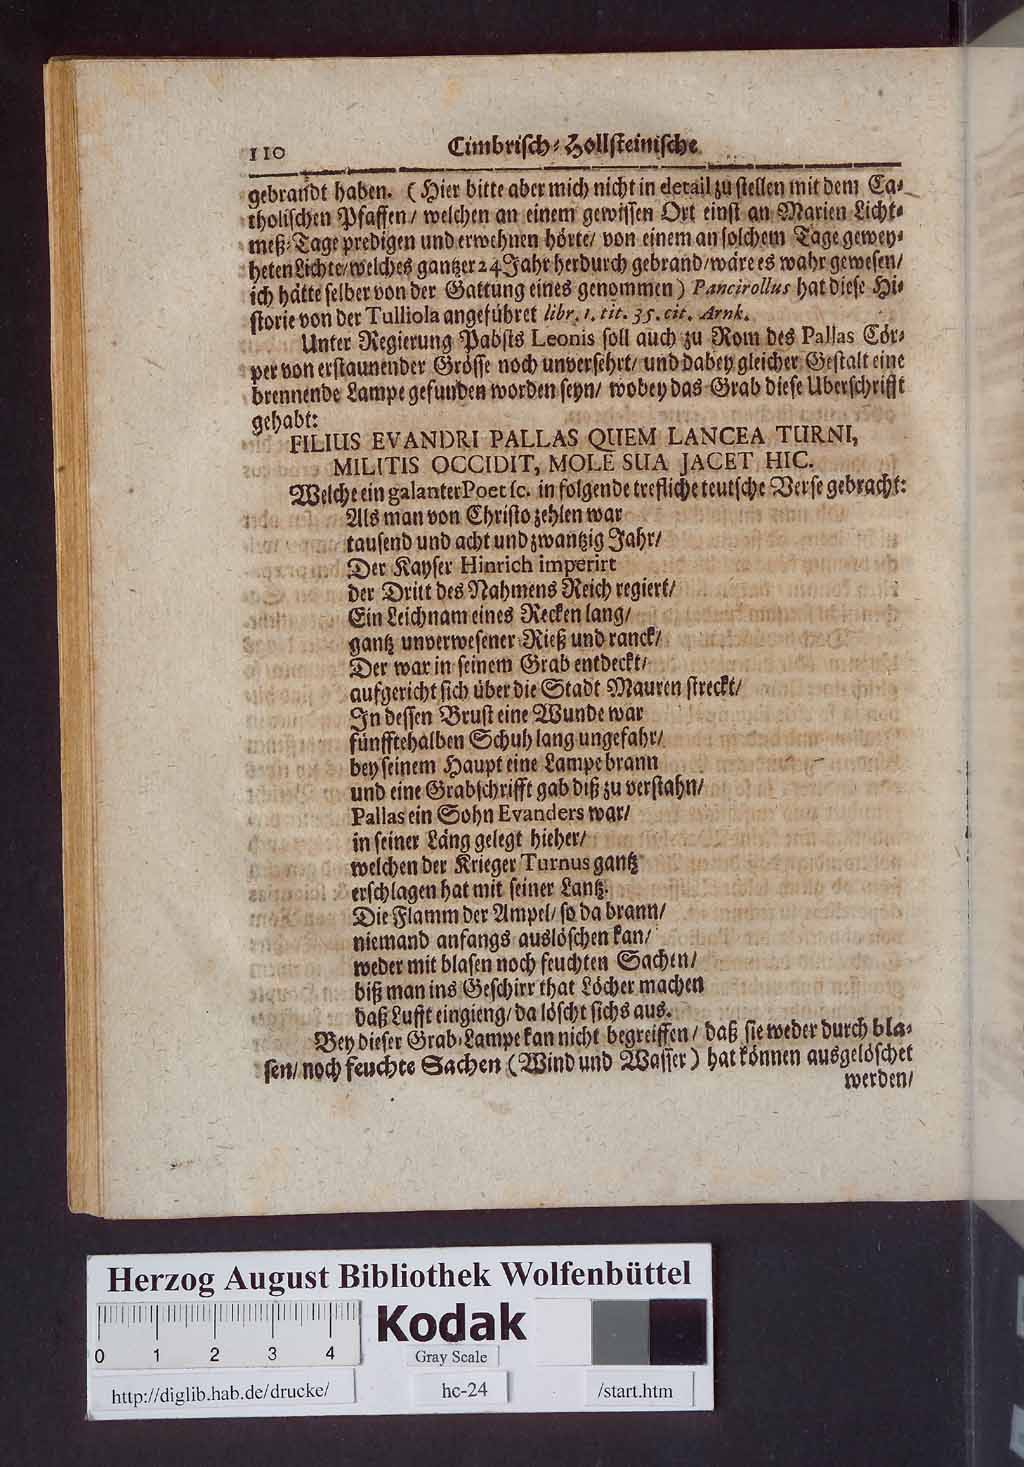 110 Cimbrisch-Hollsteinische
gebrandt haben. (Hier bitte aber mich nicht in detail zu stellen mit dem Ca-
tholischen Pfaffen/ welchen an einem gewissen Ort einst an Marien Licht-
meß-Tage predigen und erwehnen hörte/ von einem an solchem Tage gewey-
heten Lichte/ welches gantzer 24 Jahr herdurch gebrand/ wäre es wahr gewesen/
ich hätte selber von der Gattung eines genommen) Pancirollus hat diese Hi-
storie von der Tulliola angeführet libr. 1. tit. 35. cit. Arnk.
Unter Regierung Pabsts Leonis soll auch zu Rom des Pallas Cör-
per von erstaunender Grösse noch unversehrt/ und dabey gleicher Gestalt eine
brennende Lampe gefunden worden seyn/ wobey das Grab diese Uberschrifft
gehabt:
FILIUS EVANDRI PALLAS QUEM LANCEA TURNI,
MILITIS OCCIDIT, MOLE SUA JACET HIC.
Welche ein galanter Poet sc. in folgende trefliche teutsche Verse gebracht:
Als man von Christo zehlen war
tausend und acht und zwantzig Jahr/
Der Kayser Hinrich imperirt
der Dritt des Nahmens Reich regiert/
Ein Leichnam eines Recken lang/
gantz unverwesener Rieß und ranck/
Der war in seinem Grab entdeckt/
aufgericht sich über die Stadt Mauren streckt/
In dessen Brust eine Wunde war
fünfftehalben Schuh lang ungefahr/
bey seinem Haupt eine Lampe brann
und eine Grabschrifft gab diß zu verstahn/
Pallas ein Sohn Evanders war/
in seiner Läng gelegt hieher/
welchen der Krieger Turnus gantz
erschlagen hat mit seiner Lantz.
Die Flamm der Ampel/ so da brann/
niemand anfangs auslöschen kan/
weder mit blasen noch feuchten Sachen/
biß man ins Geschirr that Löcher machen
daß Lufft eingieng/ da löscht sichs aus.
Bey dieser Grab-Lampe kan nicht begreiffen/ daß sie weder durch bla-
sen/ noch feuchte Sachen (Wind und Wasser) hat können ausgelöschet
werden/
Herzog August Bibliothek Wolfenbüttel
Kodak
0 1 2 3 4
Gray Scale
http://diglib.hab.de/drucke/ hc-24 /start.htm